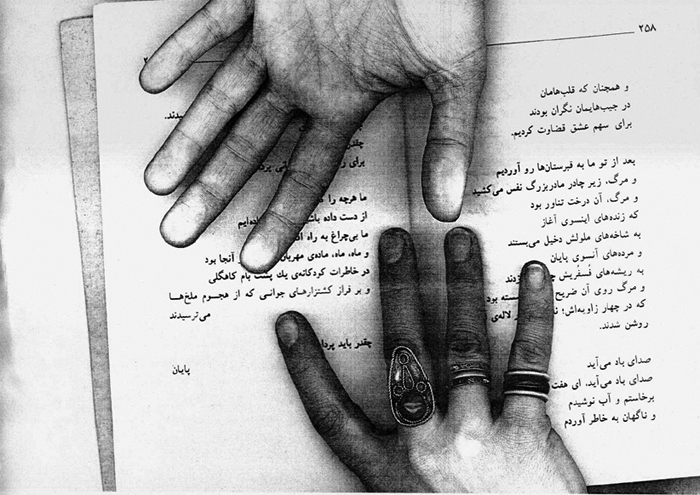 ۲۵۸
و همچنان که قلب‌هامان
در جیب‌هایمان نگران بودند
برای سهم عشق قضاوت کردیم.
بعد از تو ما به قبرستان‌ها رو آوردیم
و مرگ، زیر چادر مادربزرگ نفس می‌کشید
و مرگ، آن درخت تناور بود
که زنده‌های اینسوی آغاز
به شاخه‌های ملولش دخیل می‌بستند
و مرده‌های آنسوی پایان
به ریشه‌های فسفریش
و مرگ روی آن ضریح بود
که در چهار زاویه‌اش؛ لاله‌ی
روشن شدند.
صدای باد می‌آید
صدای باد می‌آید، ای هفت
برخاستم و آب نوشیدم
و ناگهان به خاطر آوردم
چقدر
برای
ما هرچه را
از دست داده
ما بی‌چراغ به راه
و ماه، ماه، ماده‌ی مهربان آنجا بود
در خاطرات کودکانه‌ی یک پشت بام کاهگلی
و بر فراز کشتزارهای جوانی که از هجوم ملخ‌ها
می‌ترسیدند
چقدر باید
پایان